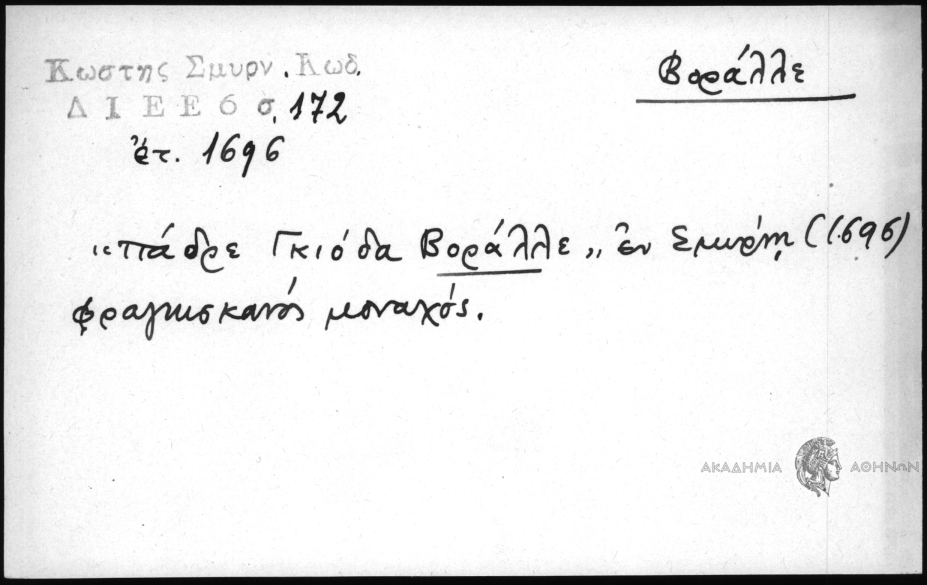 Κωστης Σμυρν. Κωδ.
Βοράλλε
ΔΙΕΕ 6 σ. 172
ἔτ. 1696
„πάδρε Γκιόδα Βοράλλε„ ἐν Σμύρνῃ (1696)
φραγκισκανός μοναχός.
ΑΚΑΔΗΜΙΑ ΑΘΗΝΩΝ